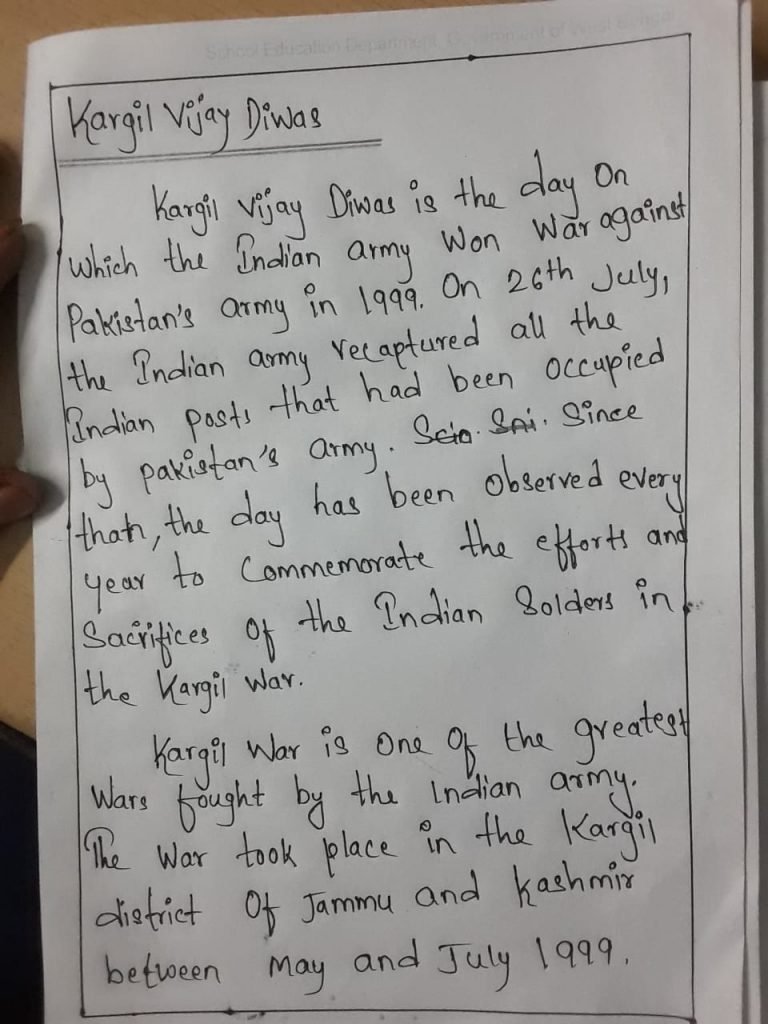 School Education Department, Government of West Bengal
Kargil Vijay Diwas
Kargil Vijay Diwas is the day On
which the Indian army Won War against
Pakistan's army in 1999. On 26th July,
the Indian army recaptured all the
Indian posts that had been occupied
by pakistan's army. Since
than, the day has been observed every
year to Commemorate the efforts and
Sacrifices of the Indian Solders in
the Kargil war.
Kargil War is One Of the greatest
Wars fought by the Indian army.
The War took place in the Kargil
district Of Jammu and Kashmir
between May and July 1999.